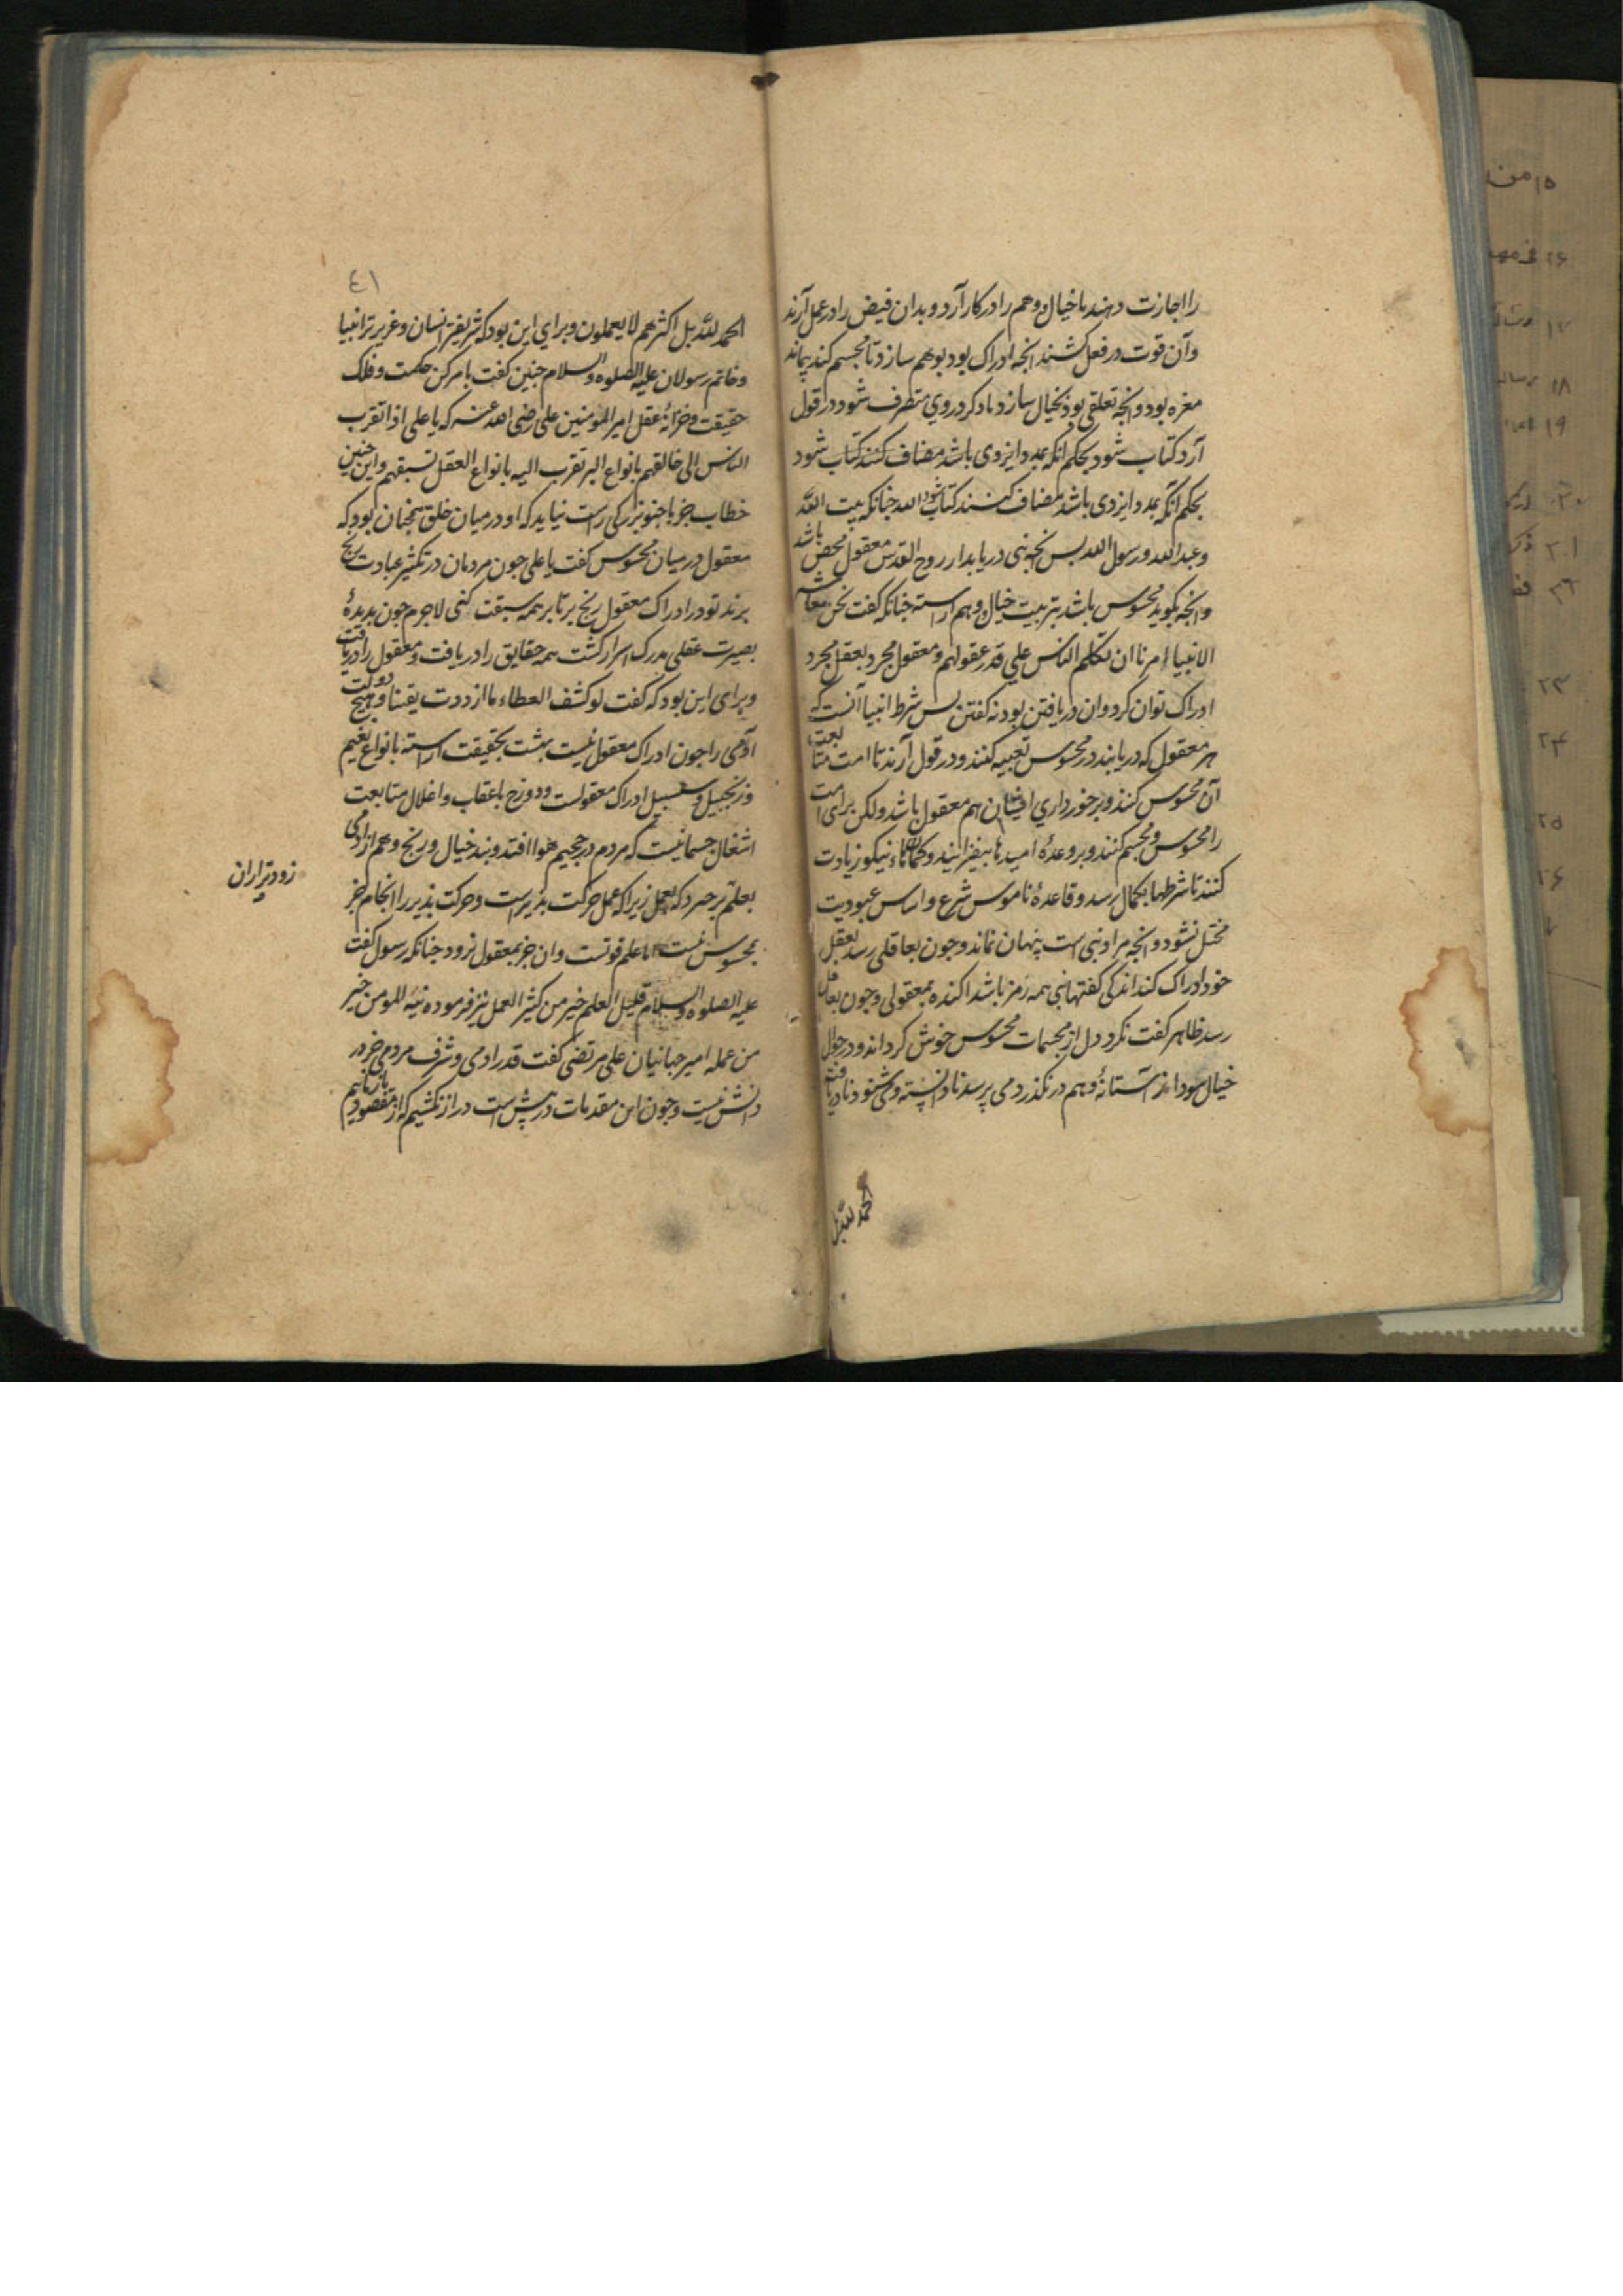 را اجازت دهند با خیال و وهم را در کار آرد و بدان فیض را در عمل آرند
وآن قوت در فعل کشند انجه ادراک بود بوهم سازد تا مجسم کند بماند
مغره بود و انجه تعلقی بود بخیال سازد باد کرد در وی متصرف شود در قول
آرد کتاب شود بحکم انکه بمدد ایزدی باشد مضاف کنند کتاب شود
بحکم انکه بمدد ایزدی باشد مضاف کنند کتاب الله شود جنانکه بیت الله
وعبد الله ورسول الله بس انجه نبی دریابد از روح القدس معقول محض باشد
و انجه بکوید محسوس باشد بتربیت خیال و وهم اراسته جنانکه کفت نحن معاشر
الانبیا امرنا ان نکلم الناس علی قدر عقولهم و معقول مجرد بعقل مجرد
ادراک توان کرد و ان دریافتن بود نه کفتن بس شرط انبیا آنست که
هر معقول که دریابند در محسوس تعبیه کنند و در قول آرند تا امت متابعت
آن محسوس کنند و برخورداری ایشان هم معقول باشد ولکن برای امت
را محسوس و مجسم کنند و بر وعدۀ امیدها بیفزایند و کمانهاء نیکو زیادت
کنند تا شرطها بکمال رسد و قاعدۀ ناموس شرع و اساس عبودیت
مختل نشود و انجه مراد نبی است پنهان نماند و جون بعاقلی رسد بعقل
خود ادراک کند اندکی کفتهاء نبی همه رمز باشد اکنده بمعقولی و جون بغافل
رسد ظاهر کفت نکرد و دل از مجسمات محسوس خوش کرداند و در جوال
خیال سود و از آستانۀ وهم در نکذرد می پرسد نادانسته و می شنود نادریافته
الحمد لله بل
٤١
الحمد لله بل اکثرهم لا یعملون و برای این بود که شریفترین انسان و عزیزتر انبیا
وخاتم رسولان علیه الصلوه والسلام جنین کفت با مرکز حکمت و فلک
حقیقت و خزانۀ عقل امیر المؤمنین علی رضی الله عنه که یا علی اذا تقرب
الناس الی خالقهم بانواع البر تقرب الیه بانواع العقل تسبقهم و این جنین
خطاب جز با جنو بزرکی راست نیاید که او در میان خلق همجنان بود که
معقول در میان محسوس کفت یا علی جون مردمان در تکثیر عبادت رنج
برند تو در ادراک معقول رنج بر تا بر همه سبقت کنی لاجرم جون بدیدۀ
بصیرت عقلی مدرک اسرار کشت همه حقایق را دریافت و معقول را دریافت
و برای این بود که کفت لو کشف الغطاء ما ازددت یقینا و هیج دولت
آدمی را جون ادراک معقول نیست بهشت بحقیقت اراسته بانواع نعیم
وزنجبیل و سلسبیل ادراک معقولست و دوزخ با عقاب و اغلال متابعت
اشغال جسمانیست که مردم در جحیم هوا افتد و بند خیال و رنج وهم از ادمی
بعلم برخیزد که بعمل زیرا که عمل حرکت بذیر است و حرکت بذیر را انجام جز
بمحسوس نیست اما علم قوتست و ان جز بمعقول نرود جنانکه رسول کفت
علیه الصلوه والسلام قلیل العلم خیر من کثیر العمل نیز فرموده نیه المومن خیر
من عمله امیر جهانیان علی مرتضی کفت قدر ادمی و شرف مردمی جز در
دانش نیست و جون این مقدمات در پیش است دراز نکشیم که از مقصود باز مانیم
زودتر از ان